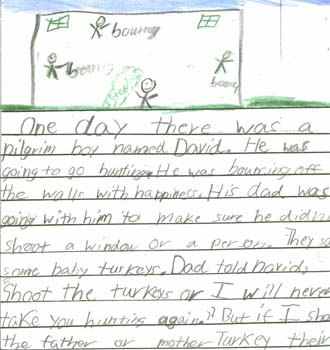 boung
boung
boung
One day there was a
pilgrim boy named David. He was
going to go hunting. He was bouncing off
the walls with happiness. His dad was
going with him to make sure he didn
shoot a window or a person. They sa
some baby turkeys. Dad told David,
Shoot the turkeys or I will never
take you hunting again." But if I sho
the father or mother Turkey their